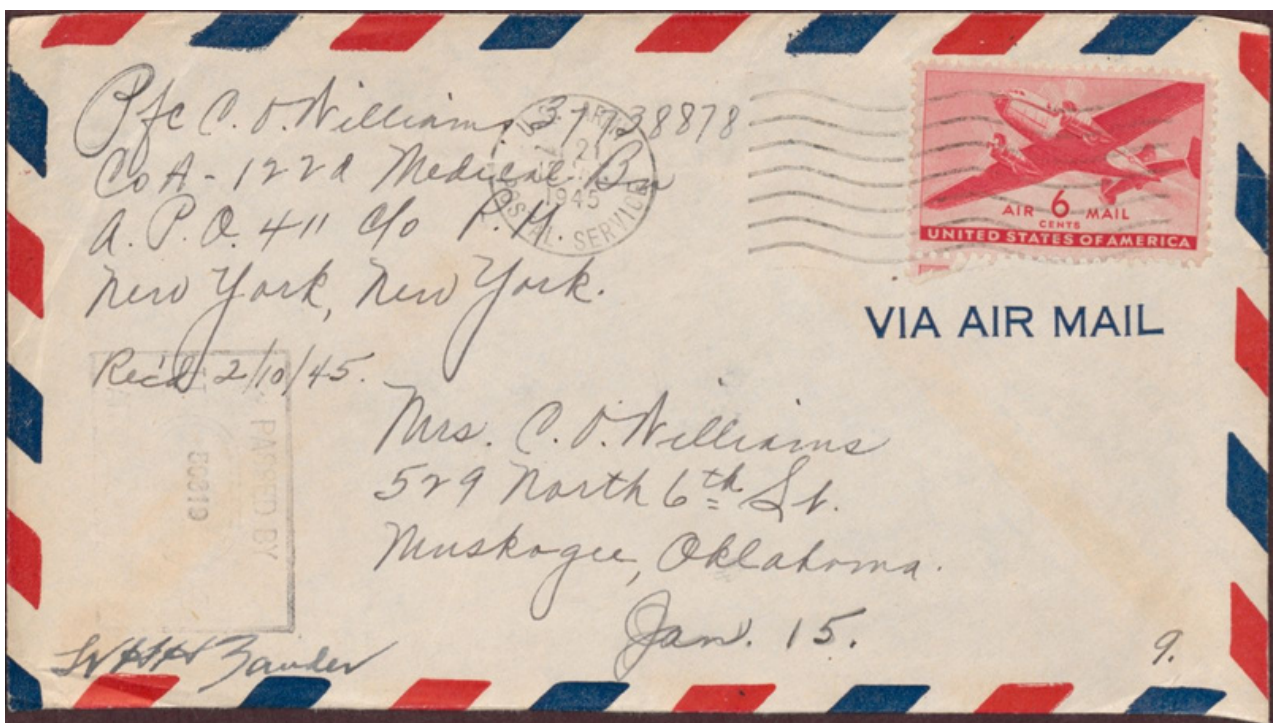 Pfc C. O. Williams 37738878
Co A - 122d Medical Bn
A. P. O. 411 c/o P.M.
New York, New York.
U.S. ARMY
21
1945
POSTAL SERVICE
AIR 6 MAIL
CENTS
UNITED STATES OF AMERICA
VIA AIR MAIL
Rec'd 2/10/45.
PASSED BY
Mrs. C. O. Williams
529 North 6th St.
Muskogee, Oklahoma.
Jan. 15.
9.